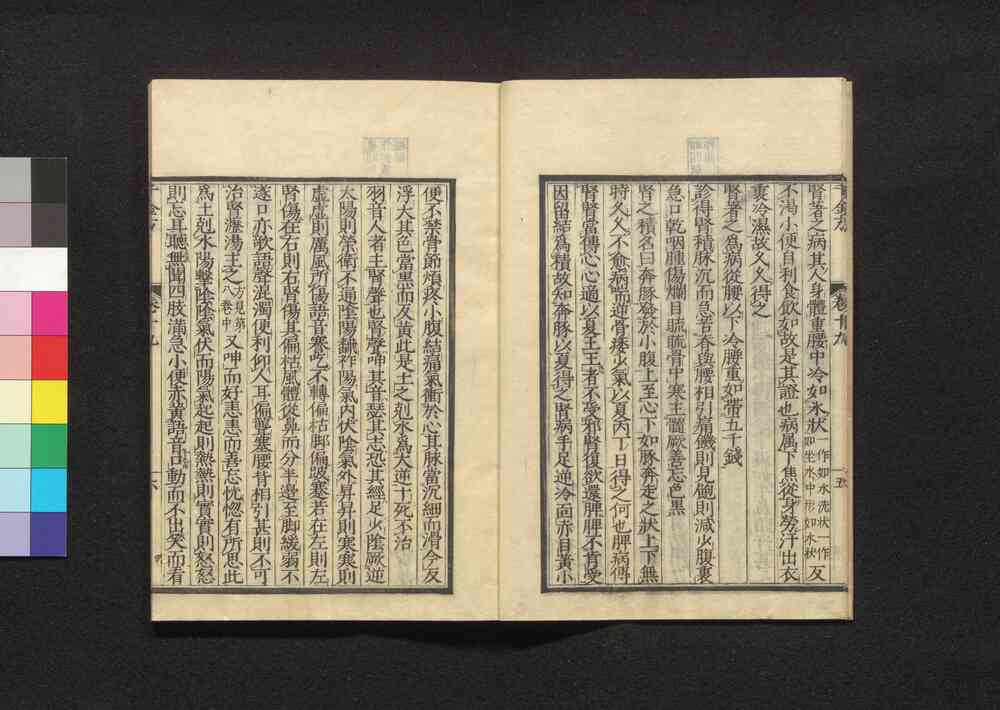 腎著之病其人身體重腰中冷如氷狀一作如水洗狀一作如坐水中形如水狀反
不渴小便自利食飲如故是其證也病屬下焦從身勞汗出衣
裏冷濕故久久得之
腎著之爲病從腰以下冷腰重如帶五千錢
診得腎積脉沉而急苦脊與腰相引痛饑則見飽則減少腹裏
急口乾咽腫傷爛目䀮䀮骨中寒主髓厥善忘色黑
腎之積名曰奔豚發於小腹上至心下如豚奔走之狀上下無
時久久不愈病喘逆骨痿少氣以夏丙丁日得之何也脾病傳
腎腎當傳心心適以夏王王者不受邪腎復欲還脾脾不肯受
因留結爲積故知奔豚以夏得之腎病手足逆冷面赤目黃小
便不禁骨節煩疼小腹結痛氣衝於心其脉當沉細而滑今反
浮大其色當黑而反黃此是土之剋水爲大逆十死不治
羽音人者主腎聲也腎聲呻其音瑟其志恐其經足少陰厥逆
太陽則榮衛不通陰陽翻祚陽氣內伏陰氣外昇昇則寒寒則
虛虛則厲風所傷語音蹇吃不轉偏枯脚偏跛蹇若在左則左
腎傷在右則右腎傷其偏枯風體從鼻而分半邊至脚緩弱不
遂口亦欹語聲混濁便利仰人耳偏聾塞腰背相引甚則不可
治腎瀝湯主之方見第八卷中又呻而好恚恚而善忘恍惚有所思此
爲土剋水陽擊陰陰氣伏而陽氣起起則熱熱則實實則怒怒
則忘耳聽無聞四肢滿急小便赤黃語音口動而不出笑而看
卷十九